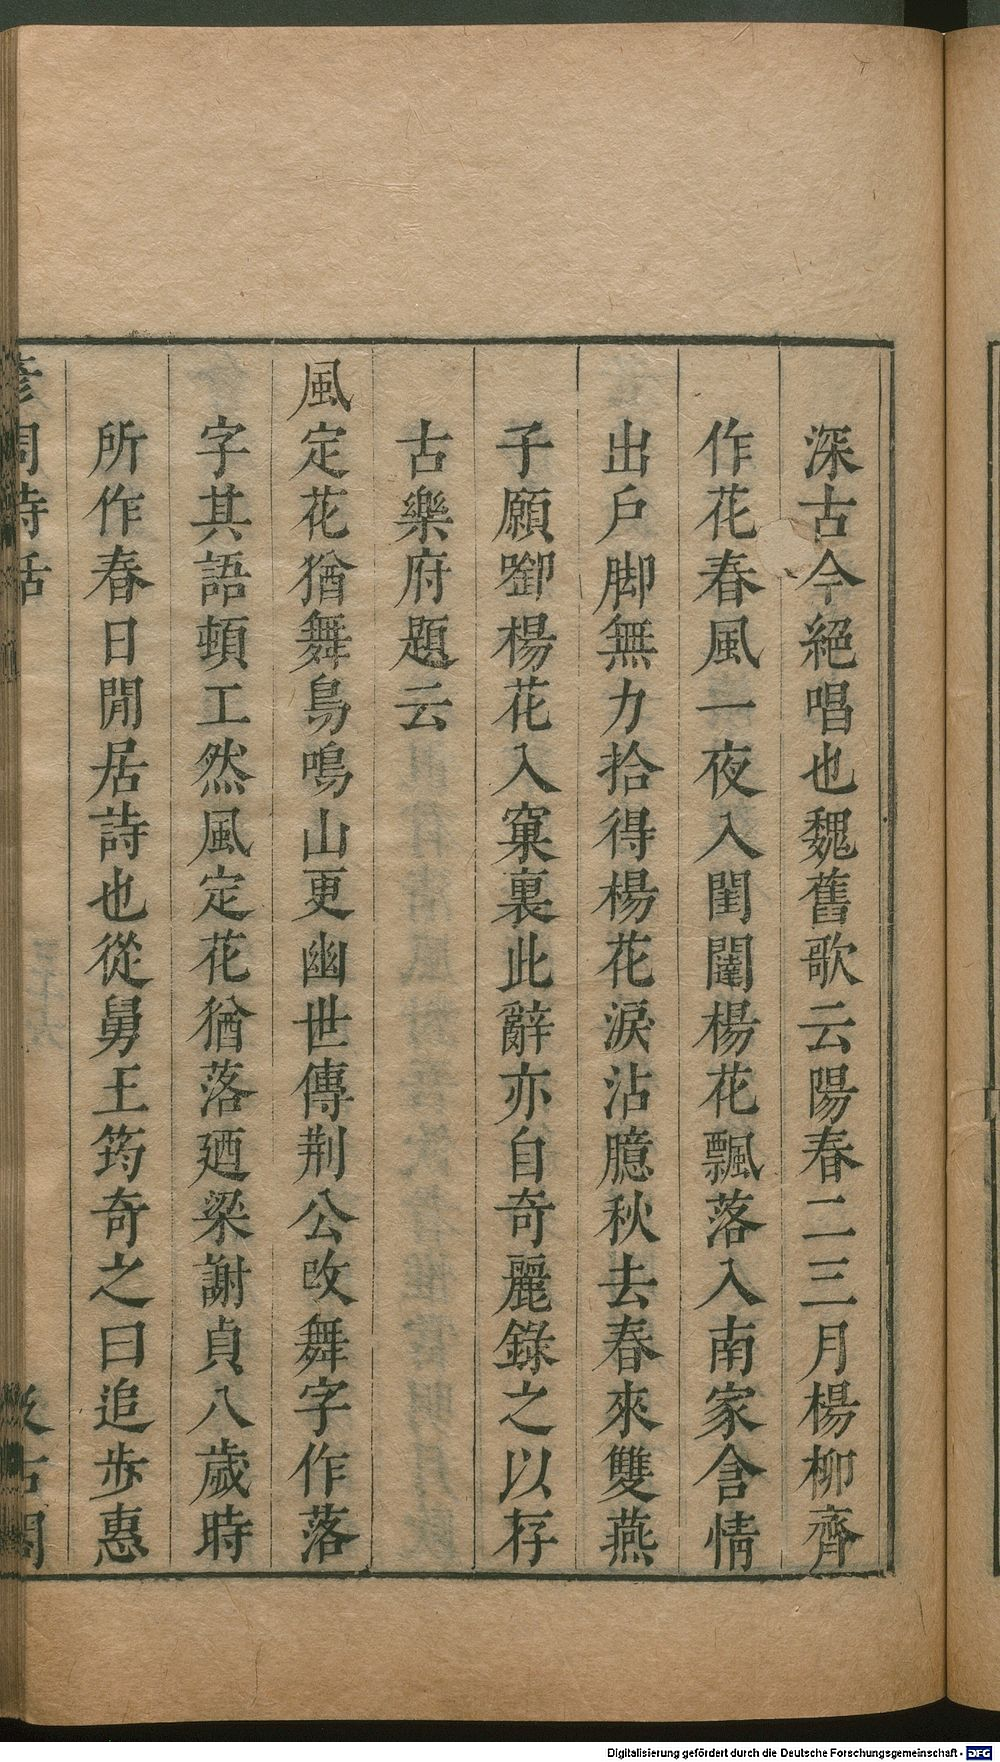 深古今絕唱也魏舊歌云陽春二三月楊柳齊
作花春風一夜入閨闥楊花飄落入南家含情
出戶脚無力拾得楊花淚沾臆秋去春來雙燕
子願啣楊花入窠裏此辭亦自奇麗錄之以存
古樂府題云
風定花猶舞鳥鳴山更幽世傳荆公改舞字作落
字其語頓工然風定花猶落廼梁謝貞八歲時
所作春日閒居詩也從舅王筠奇之曰追步惠
彥周詩話
汲古閣
Digitalisierung gefördert durch die Deutsche Forschungsgemeinschaft - DFG